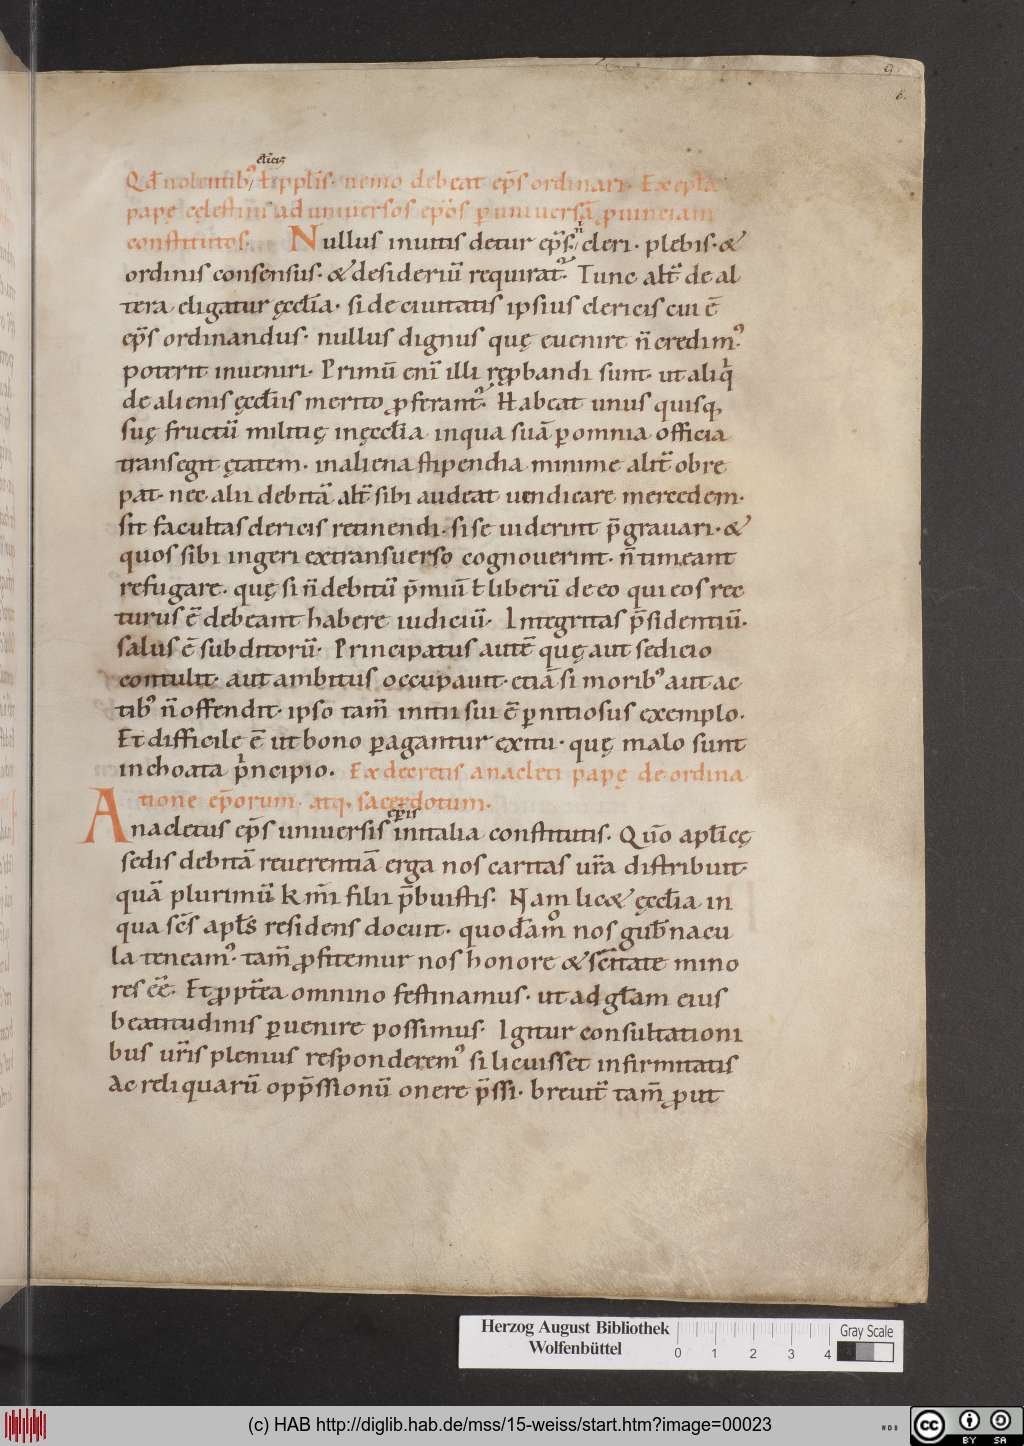 9
6.
cl̄icis
Qđ nolentib⁊ ł ip pl̄is· nemo debeat ep̄s ordinari· Ex epl̄a
papę cęlestini ad uniuersos ep̄os p̱ uniuersā ꝓuinciam
constitutos. Nullus inuitis detur ep̄s· cleri· plebis· &
ordinis consensus· & desideriū requirat᷑· Tunc alt̄ de al
tera eligatur ęccl̄ia· si de ciuitatis ipsius clericis cui ē
ep̄s ordinandus· nullus dignus quę euenire n̄ credim᷒·
poterit inueniri· Primū eni̅ illi rep̱bandi sunt· ut aliqͥ
de alienis ęccl̄iis merito ꝓferant᷑· Habeat unus quisq,
suę fructū militię in ęccl̄ia in qua suā p̱ omnia officia
transegit ętatem· in aliena stipendia minime alt̄ obre
pat· nec alii debitā alt̄ sibi audeat uendicare mercedem·
sit facultas clericis retinendi· si se uiderint p̄grauari· &
quos sibi ingeri ex transuerso cognouerint· n̄ timeant
refugare· quę si n̄ debitū p̄miū ł liberū de eo qui eos rec
turus ē debeant habere iudiciū· Integritas p̄sidentiū·
salus ē subditorū· Principatus autē quę aut sedicio
contulit· aut ambitus occupauit· etiā si morib᷒ aut ac
tib᷒ n̄ offendit· ipso tam̄ initii sui ē p̱nitiosus exemplo·
Et difficile ē ut bono p̱agantur exitu· quę malo sunt
inchoata pͥncipio. Ex decretis anacleti papę de ordina
tione ep̄orum· atq, sacerdotum·
ep̄is
Anacletus ep̄s uniuersis in italia constitutis· Quō apl̄icę
sedis debitā reuerentiā erga nos caritas ur̄a distribuit·
quā plurimū k̄mi filii p̄buistis· Nam lic& ęccl̄ia in
qua sc̄s apl̄s residens docuit· quodāmͦ nos gub̄nacu
la teneam᷒· tam̄ ꝓfitemur nos honore & sc̄itate mino
res ēē· Et ꝓpt̄ea omnino festinamus· ut ad gl̄am eius
beatitudinis p̱uenire possimus· Igitur consultationi
bus ur̄is plenius responderem᷒ si licuisset infirmitatis
ac reliquarū opp̄ssionū onere p̄ssi· breuit̄ tam̄ ꝓut
Herzog August Bibliothek
Wolfenbüttel
0 1 2 3 4
Gray Scale
(c) HAB http://diglib.hab.de/mss/15-weiss/start.htm?image=00023
WDB
cc
BY SA